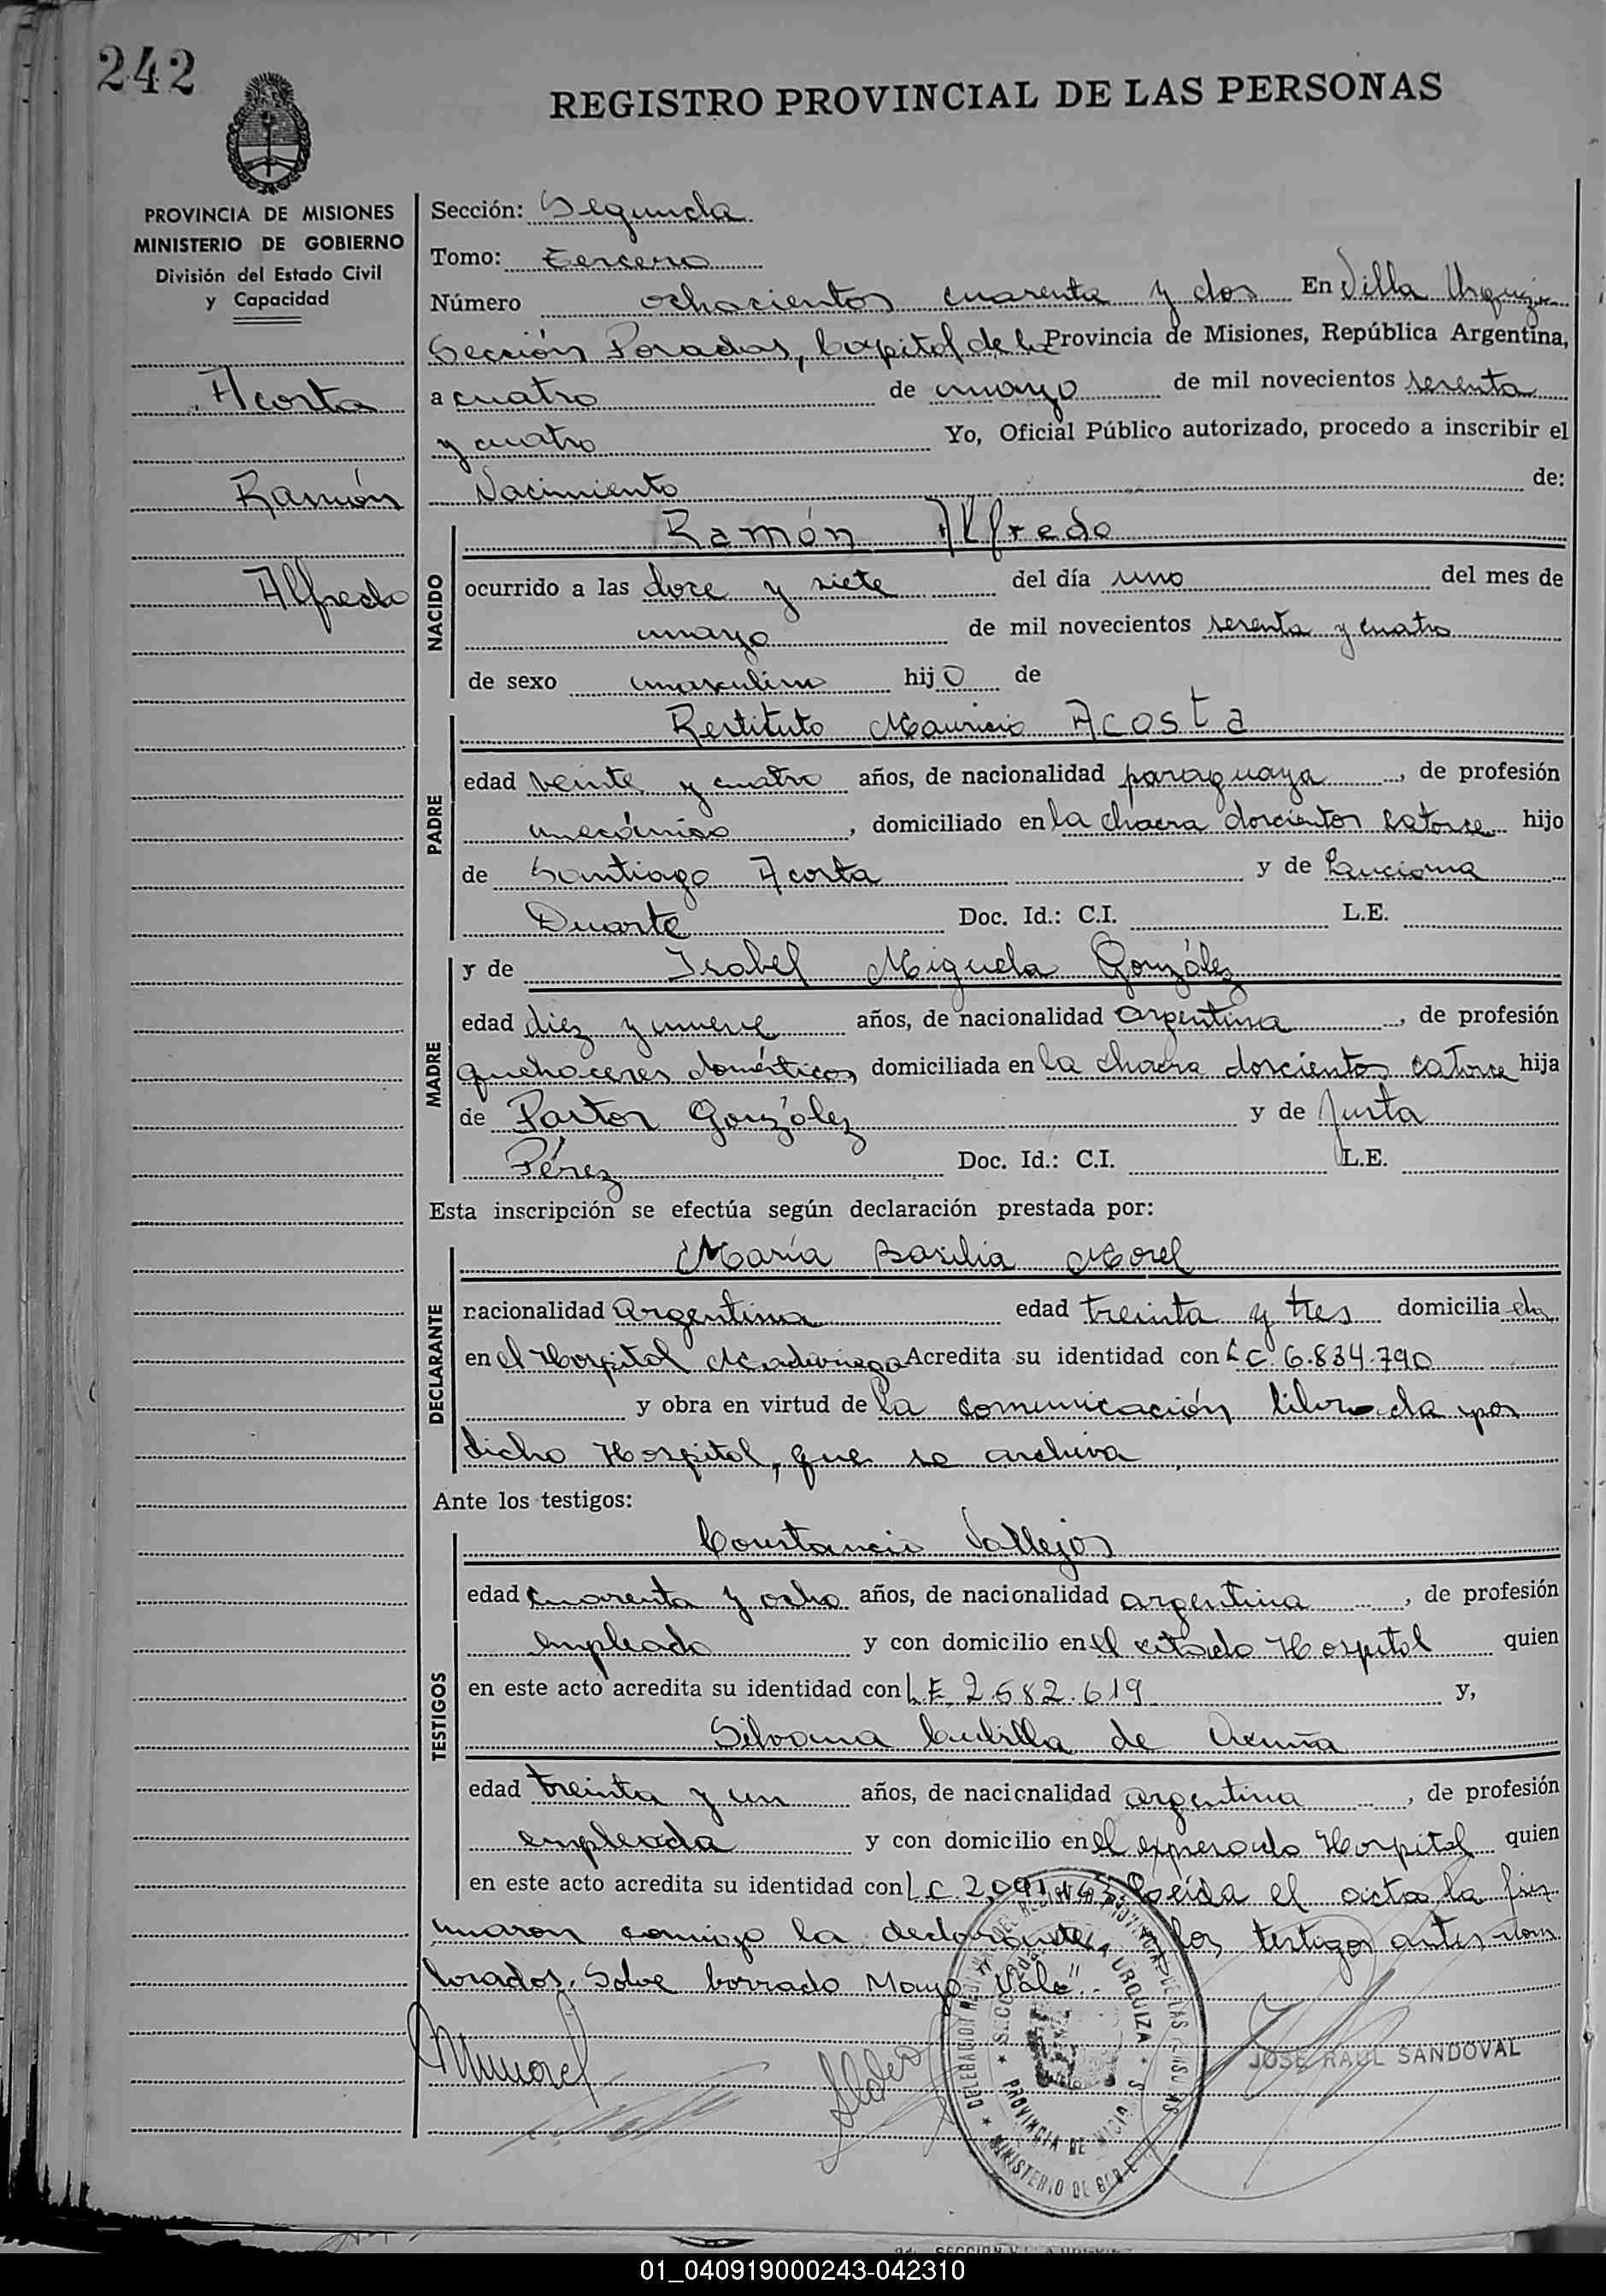 242
REGISTRO PROVINCIAL DE LAS PERSONAS
PROVINCIA DE MISIONES
MINISTERIO DE GOBIERNO
División del Estado Civil
y Capacidad
Acosta
Ramón
Alfredo
Sección: Segunda
Tomo: Tercero
Número ochocientos cuarenta y dos En Villa Urquiza
Sección Posadas, Capital de la Provincia de Misiones, República Argentina,
a cuatro de mayo de mil novecientos sesenta
y cuatro Yo, Oficial Público autorizado, procedo a inscribir el
Nacimiento de:
NACIDO
Ramón Alfredo
ocurrido a las doce y siete del día uno del mes de
mayo de mil novecientos sesenta y cuatro
de sexo masculino hijo de
PADRE
Restituto Mauricio Acosta
edad veinte y cuatro años, de nacionalidad paraguaya, de profesión
mecánico, domiciliado en la chacra doscientos catorce hijo
de Santiago Acosta y de Luciana
Duarte Doc. Id.: C.I. L.E.
MADRE
y de Isabel Miguela González
edad diez y nueve años, de nacionalidad argentina, de profesión
quehaceres domésticos domiciliada en la chacra doscientos catorce hija
de Pastor González y de Justa
Pérez Doc. Id.: C.I. L.E.
Esta inscripción se efectúa según declaración prestada por:
DECLARANTE
María Basilia Morel
nacionalidad Argentina edad treinta y tres domicilia da
en el Hospital Madariaga Acredita su identidad con L C 6.834.790
y obra en virtud de la comunicación librada por
dicho Hospital, que se archiva
Ante los testigos:
TESTIGOS
Constancio Vallejos
edad cuarenta y ocho años, de nacionalidad argentina, de profesión
empleado y con domicilio en el citado Hospital quien
en este acto acredita su identidad con L E 2.582.619 y,
Silvana Cubilla de Acuña
edad treinta y un años, de nacionalidad argentina, de profesión
empleada y con domicilio en el expresado Hospital quien
en este acto acredita su identidad con L C Leída el acta la fir
maron conmigo la declarante y los testigos antes nom
brados. Sobre borrado Mayo "Vale"
JOSE RAUL SANDOVAL
01_040919000243-042310